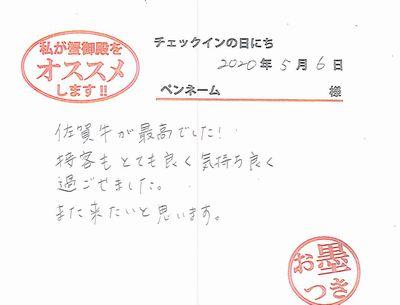 私が蟹御殿を
オススメ
します!!
チェックインの日にち
2020年5月6日
ペンネーム 様
佐賀牛が最高でした!
接客もとても良く気持ち良く
過ごせました。
また来たいと思います。
お墨
つき